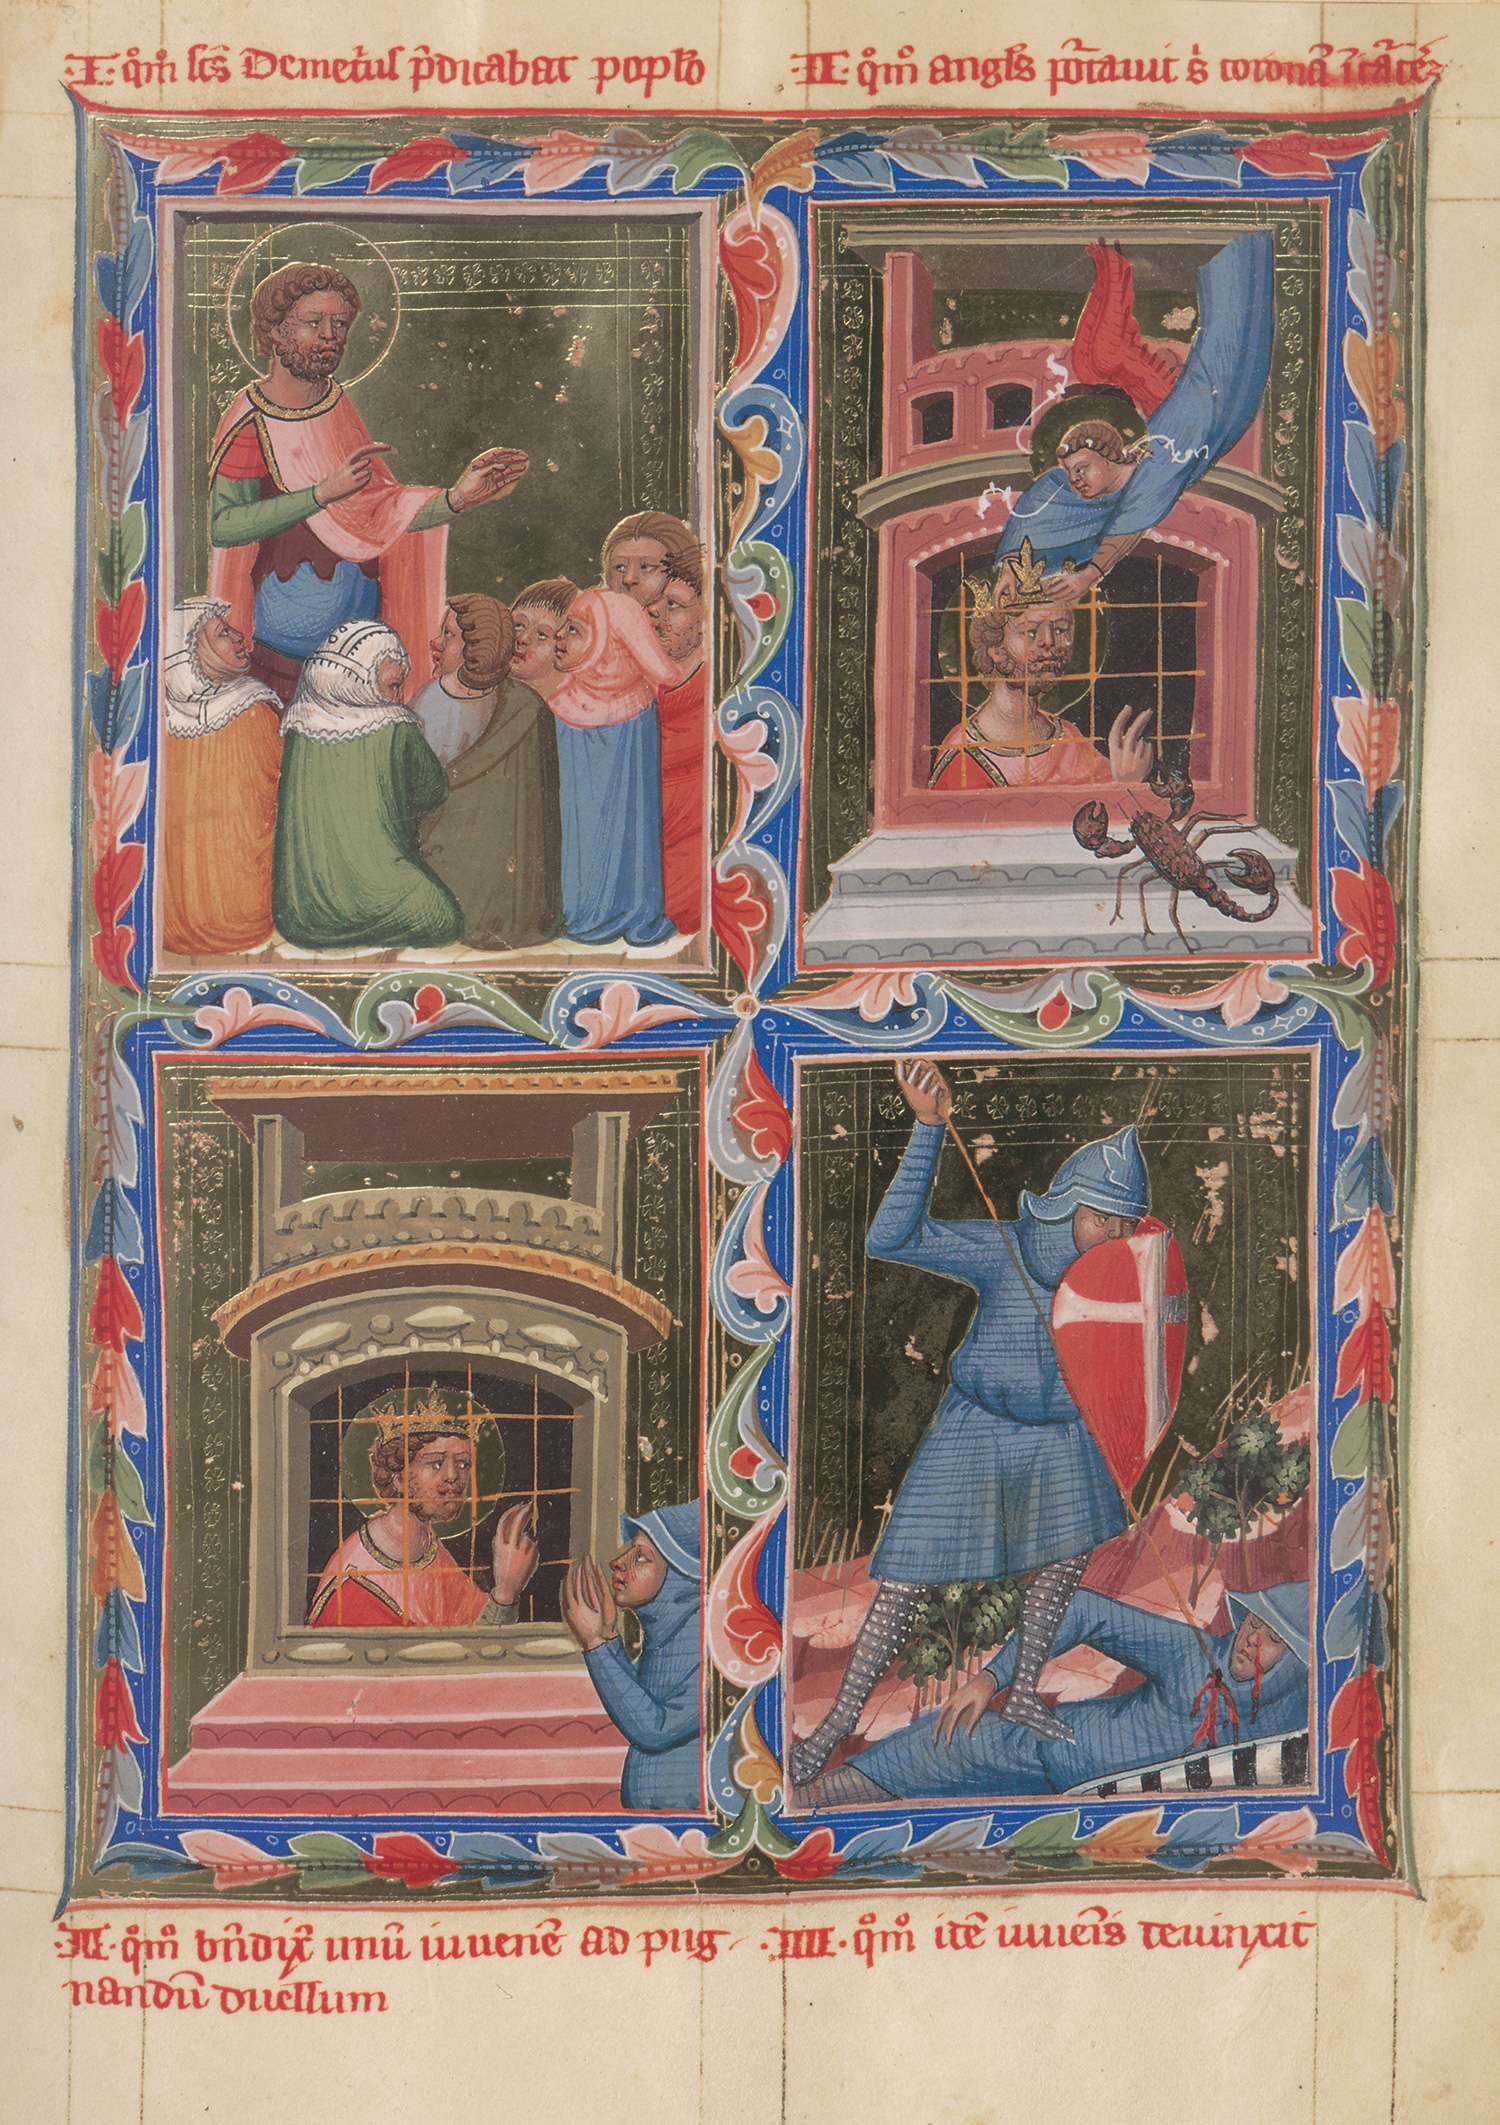 ·I· qͦmͦ scs̄ Demet͛us p̄dicabat pop̄lo
·II· qͦmͦ angl̄s portauit s̓ coronā
·III· qͦmͦ bn̄dix͛ unū iuuenē ad pug
nandū duellum
·IIII· qͦmͦ itē iuuēis deuinxit